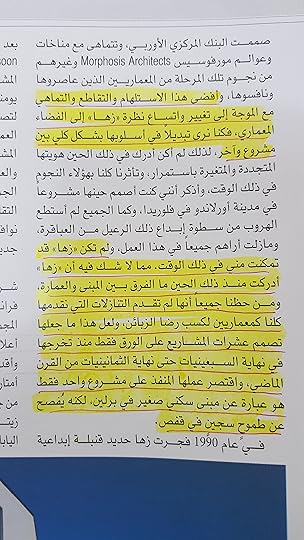 صممت البنك المركزي الأوربي، وتتماهى مع مناخات
وعوالم مورفوسيس Morphosis Architects وغيرهم
من نجوم تلك المرحلة من المعماريين الذين عاصروها
ونافسوها، وأفضى هذا الاستلهام والتقاطع والتماهي
مع الموجة إلى تغيير واتساع نظرة «زها» إلى الفضاء
المعماري، فكنا نرى تبديلاً في أسلوبها بشكل كلي بين
مشروع وآخر، لذلك لم أكن أدرك في ذلك الحين هويتها
المتجددة والمتغيرة باستمرار، وتأثرنا كلنا بهؤلاء النجوم
في ذلك الوقت، وأذكر أنني كنت أصمم حينها مشروعاً
في مدينة أورلاندو في فلوريدا، وكما الجميع لم أستطع
الهروب من سطوة إبداع ذلك الرعيل من العباقرة،
ومازلت أراهم جميعاً في هذا العمل، ولم تكن «زها» قد
تمكنت مني في ذلك الوقت، مما لا شك فيه أن «زها»
أدركت منذ ذلك الحين ما الفرق بين المبنى والعمارة،
ومن حظنا جميعاً أنها لم تقدم التنازلات التي نقدمها
كلنا كمعماريين لكسب رضا الزبائن، ولعل هذا ما جعلها
تصمم عشرات المشاريع على الورق فقط منذ تخرجها
في نهاية السبعينيات حتى نهاية الثمانينيات من القرن
الماضي، واقتصر عملها المنفذ على مشروع واحد فقط
هو عبارة عن مبنى سكني صغير في برلين، لكنه يُفصح
عن طموح سجين في قفص.
في عام 1990 فجرت زها حديد قنبلة إبداعية